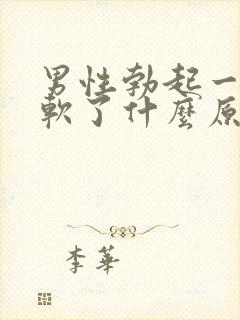 男性勃起一
軟了什麼原
李華